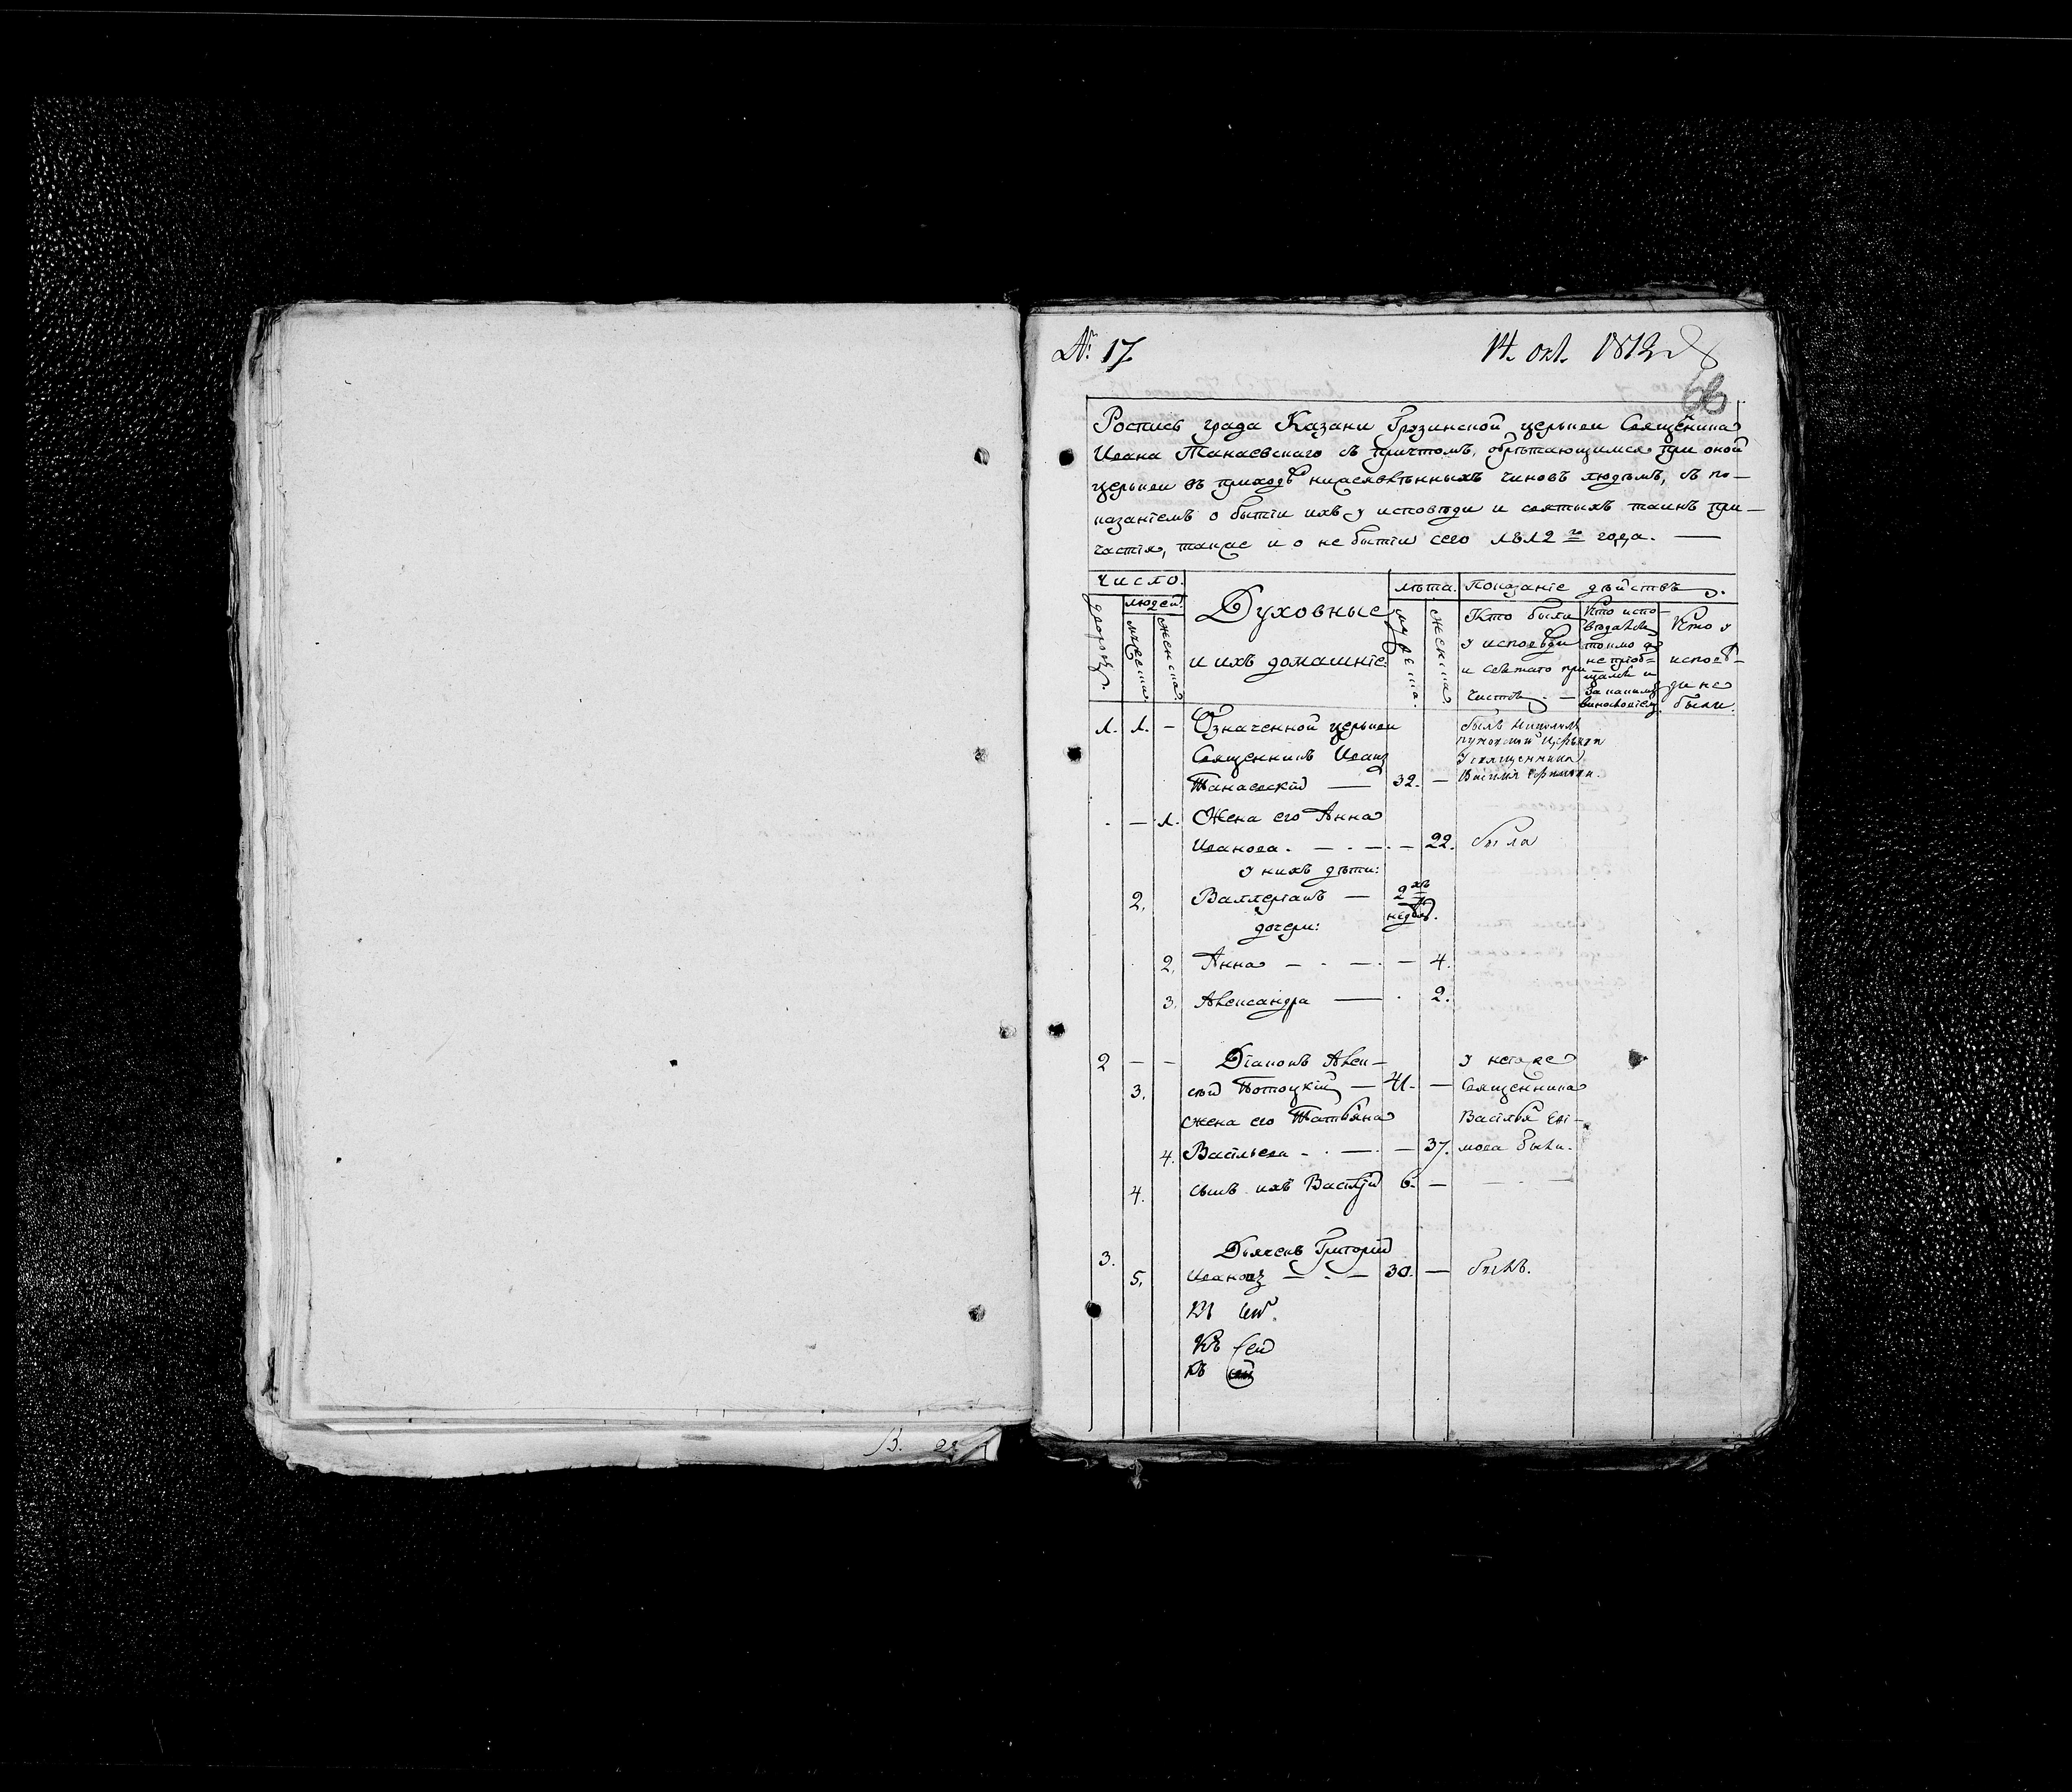 № 17
14. окт. 1812
66
Роспись града Казани Грузинской церькви Священника
Иоана Танаевскаго съ причтомъ, обрѣтающимся при оной
церькви въ приходѣ нижеявленныхъ чиновъ людѣмъ, съ по-
казаніемъ о бытіи ихъ у исповѣди и святыхъ таинъ при-
частія, также и о не бытіи сего 1812 го года.
Число.
дворовъ.
людей.
мужеска
женска.
Духовные
и ихъ домашніе.
лѣта.
мужеска.
женска.
Показаніе дѣйствъ.
Кто были
у исповѣди
и святаго при
частія
Кто испо-
вѣдались
токмо а
не приоб-
щались и
за какимъ
винословіемъ
Кто у
исповѣ-
ди не
были.
1. 1. — Означенной церькви
Священникъ Иоанъ
Танаевскій — 32. —
былъ
церькви
у священника
— 1. Жена его Анна
Иванова. — — 22. была
у нихъ дѣти:
2. Валлеріанъ — 2хъ
недѣль.
дочери:
2. Анна — — 4.
3. Александра — 2.
2 — — Діаконъ Алек-
3. сѣй Потоцкій — 41. —
жена его Татьяна
4. Васильева — — 37.
у негоже
Священника
Василья Ефи-
мова были.
4. сынъ ихъ Василій 6. —
3. Дьячекъ Григорій
5. Ивановъ — 30. — былъ.